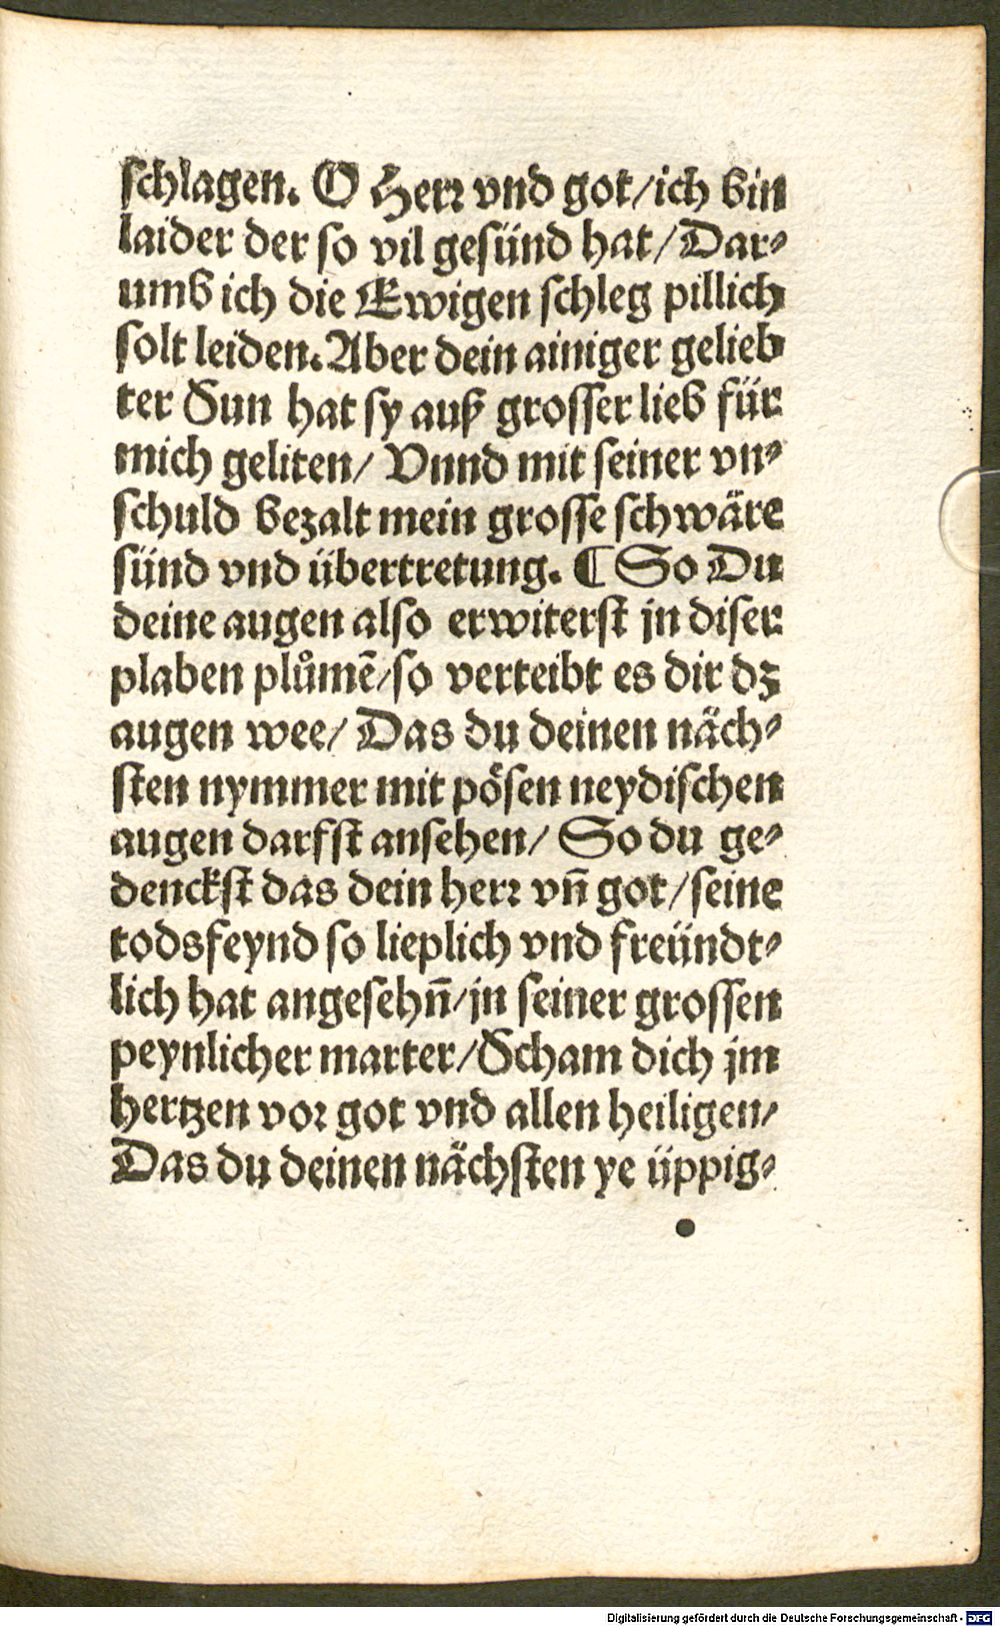 schlagen. O Herr vnd got/ich bin
laider der so vil gesünd hat/Dar-
umb ich die Ewigen schleg pillich
solt leiden. Aber dein ainiger gelieb
ter Sun hat sy auß grosser lieb für
mich geliten/ Vnnd mit seiner vn-
schuld bezalt mein grosse schwäre
sünd vnd übertretung. ¶ So Du
deine augen also erwiterst jn diser
plaben plůmē/so verteibt es dir dz
augen wee/ Das du deinen näch-
sten nymmer mit pösen neydischen
augen darfst ansehen/ So du ge-
denckst das dein herr vn̄ got/seine
todsfeynd so lieplich vnd freündt-
lich hat angesehn̄/jn seiner grossen
peynlicher marter/Scham dich jm
hertzen vor got vnd allen heiligen/
Das du deinen nächsten ye üppig-
Digitalisierung gefördert durch die Deutsche Forschungsgemeinschaft - DFG